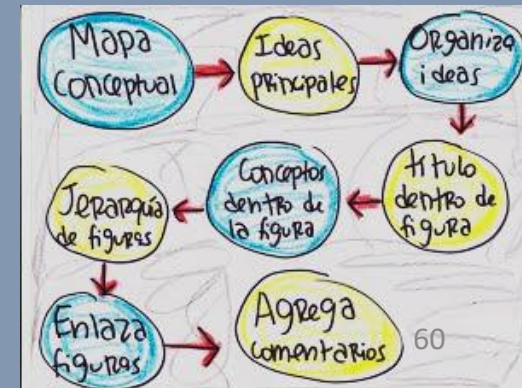 Mapa
Conceptual
Ideas
principales
Organiza
ideas
titulo
dentro de
figura
Conceptos
dentro de
la figura
Jerarquía
de figuras
Enlaza
figuras
Agrega
comentarios
60